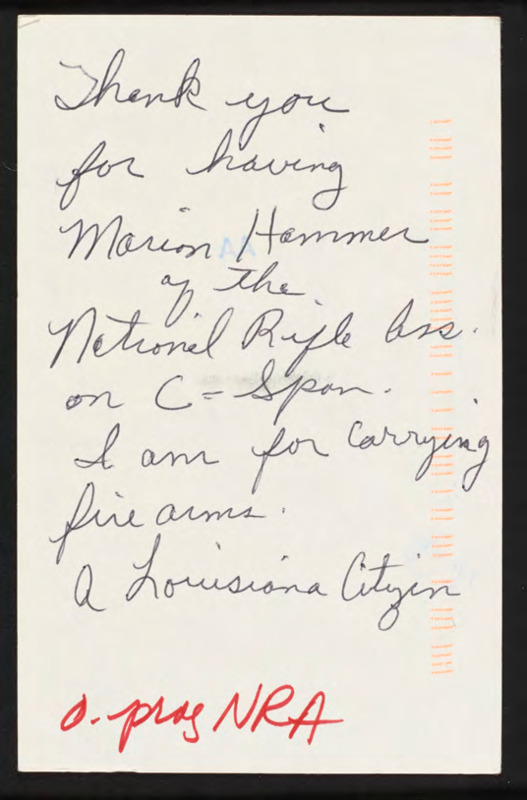 Thank you
for having
Marion Hammer
of the
National Rifle Ass.
on C=Span.
I am for carrying
fire arms.
A Louisiana Cityzin
o-prog NRA